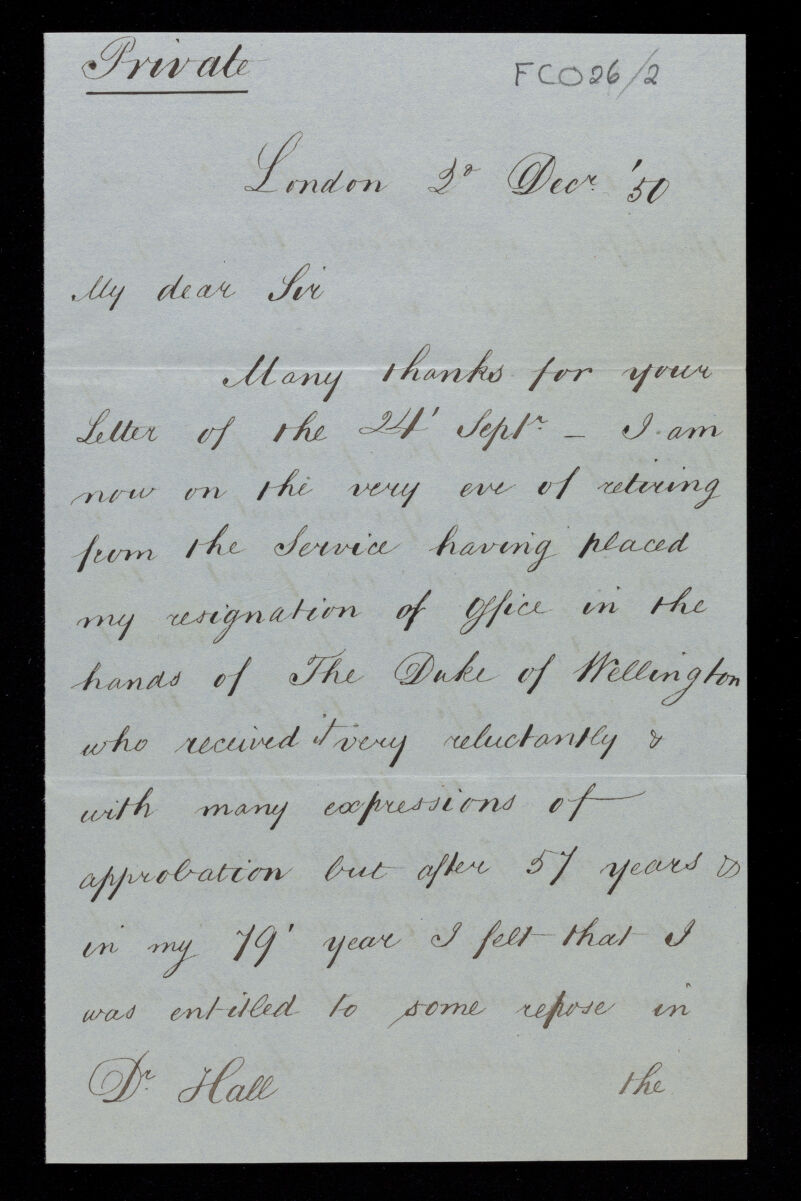 Private
FCO26/2
London 2ᵈ Decʳ '50
My dear Sir
Many thanks for your
Letter of the 24' Septʳ - I am
now on the very eve of retiring
from the Service having placed
my resignation of Office in the
hands of The Duke of Wellington
who received it very reluctantly &
with many expressions of
approbation but after 57 years &
in my 79' year I felt that I
was entitled to some repose in
Dʳ Hall the